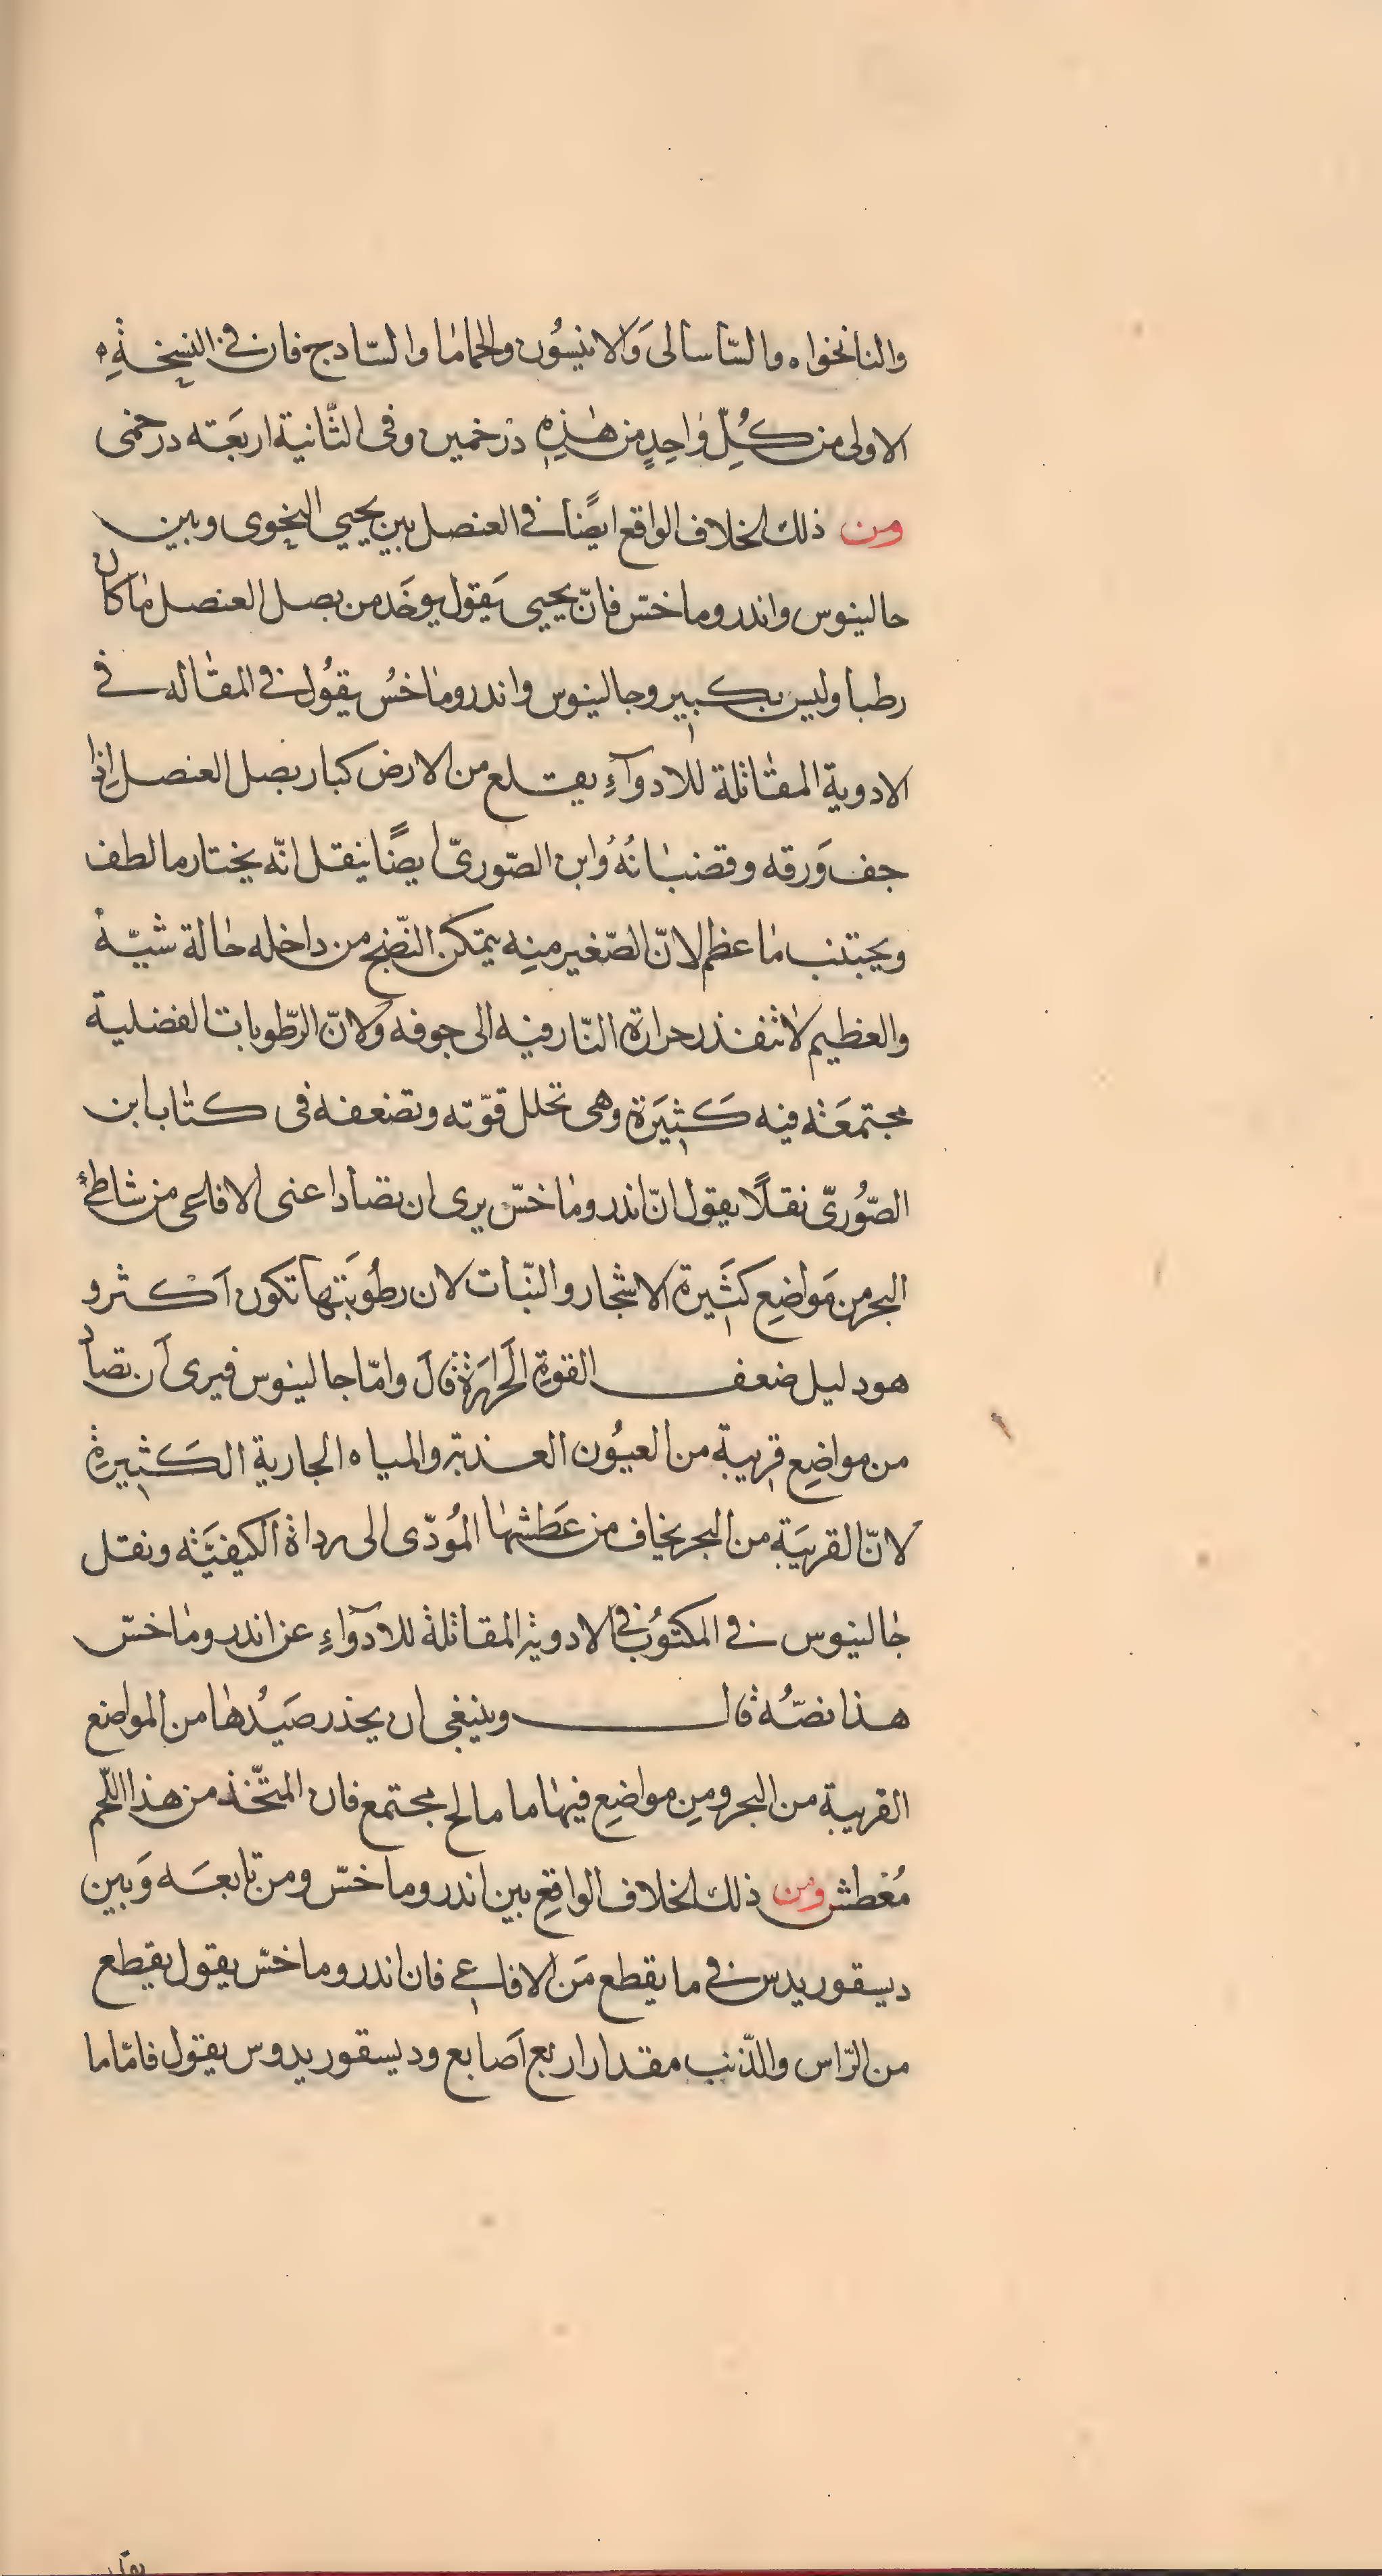 والنانخواه والسّاسالى وَالانيسُون والحماما والسّادج فان فى النسخةِ
الاولى من كُلِّ وٰاحِدٍ من هٰذِهِ درخمين وفى الثّانية اربَعَة درخمى
ومن ذلك الخلاف الواقع ايضًا فى العنصل بين يحيى النحوى وبين
جالينوس واندروماخسّ فانّ يحيى يَقول يوخَد من بصل العنصل مٰا كان
رطبا وليس بكبير وجالينوس واندرومٰاخسُ يقوُل فى المقاله فى
الادوية المقاتلة للادوآءِ يقتلع من الارض كبار بصل العنصل اِذا
جف وَرقه وقضبٰانُهُ وَابن الصّورىّ ايضًا ينقل انّه يختار ما لطف
ويجتنب مٰا عظم لانّ الصّغير منِه يتمكن النّضج من داخله حٰالة شيّه
والعظيم لا تنفذ حرارة النّار فيه الى جوفه وَلانّ الرّطوبات الفضلية
مجتمعَة فيه كَثيَرة وهى تحلل قوّته وتضعفه فى كتاب ابن
الصّوُرىّ نقلًا يقول انّ اندرومٰاخسّ يرى ان تصاد اعنى الافاعى من شاطئ
البحر من مَواضِع كثَيرة الاشجار والنّبات لان رطوُبَتها تكون اَكثر و
هو دليل ضعف القوة الحَرارَة قٰالَ وامّا جالينوس فيرى اَن تصاد
من مواضِع قريبة من العيوُن العذبة والمياه الجارية الكَثيرة
لانّ القريَبة من البحر يخاف من عَطشهٰا المُودّى الى رداة الكيفيَّة ونقل
جٰالينوس فى المكتوُب فى الادوية المقاتلة للادوٓاءِ عن اندرومٰاخسّ
هذا نصّهُ قٰال وينبغى ان يحذر صَيُدهٰا من المواضع
القريبة من البحر ومِن مواضِع فيهٰا ما مالح مجتمع فان المتّخذ من هذا اللّحم
مُعْطش ومن ذلك الخلاف الواقِع بين اندروماخسّ ومن تابعَه وَبين
ديسقوريدس فى ما يقطع مَن الافاعى فان اندروماخسّ يقول يقطع
من الرّاس والذّنب مقدار اربع اَصابع وديسقوريدوس يقول فامّا ما